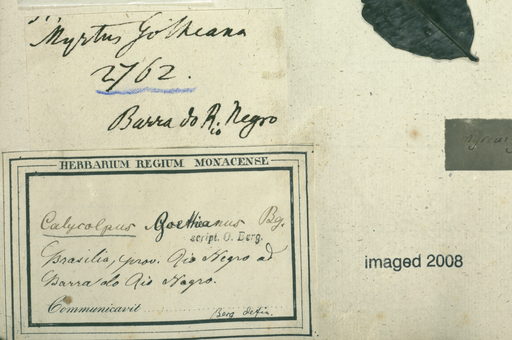 Myrtus Gotheana
2762.
Barra do Rio Negro
HERBARIUM REGIUM MONACENSE
Calycolpus Goetheanus Bg.
script. O. Berg.
Brasilia, prov. Rio Negro ad
Barra do Rio Negro.
Communicavit
Berg defin.
imaged 2008